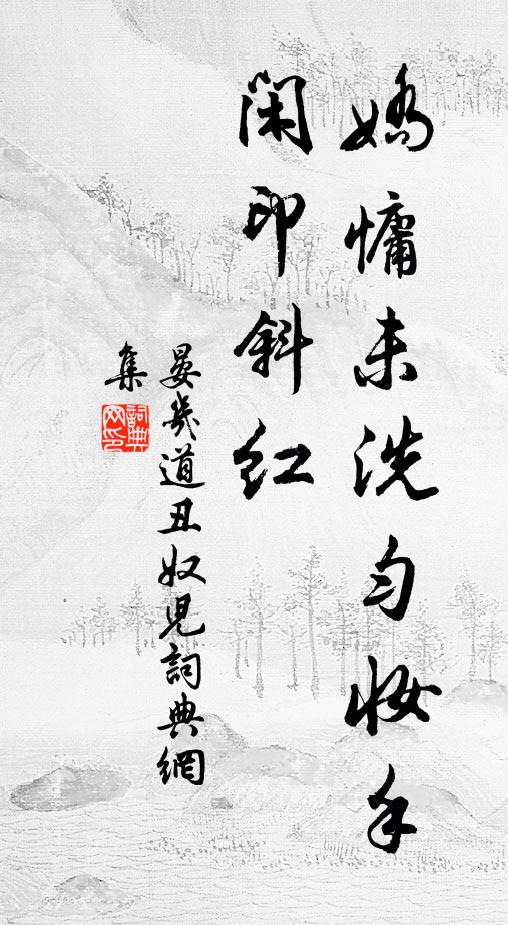 嬌慵未洗匀妝手
閑印斜紅
晏幾道丑奴兒詞典網
集
詞典網印